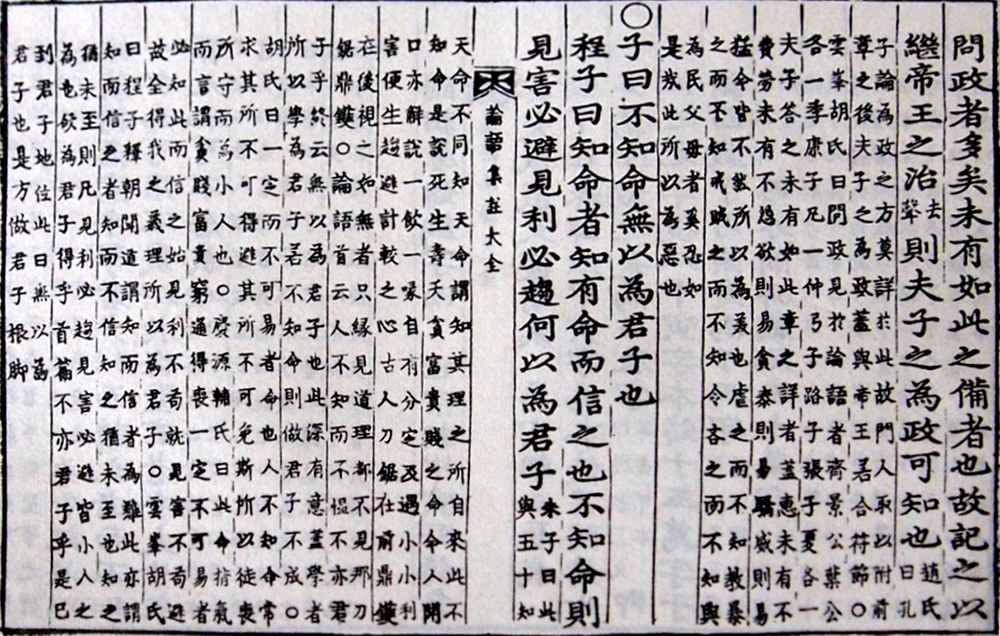 問政者多矣未有如此之備者也故記之以
繼帝王之治去聲則夫子之為政可知也趙氏曰孔
子論為政之方莫詳於此故門人取以附前
章之後夫子之為政蓋與帝王若合符節○
雲峯胡氏曰問政見於論語者齊景公葉公
各一季康子凡一仲弓子路子張子夏各一
夫子答之未有如此章之詳者蓋惠未有不
費勞未有不怨欲則易貪泰則易驕威則易
猛今皆不然所以為美也虐之而不知教暴
之而不知戒賊之而不知令吝之而不知與
為民父母者奚忍如
是哉此所以為惡也
○子曰不知命無以為君子也
程子曰知命者知有命而信之也不知命則
見害必避見利必趨何以為君子朱子曰此與五十知
論語集註大全
天命不同知天命謂知其理之所自來此不
知命是說死生壽夭貧富貴賤之命今人開
口亦解說一飲一啄自有分定及遇小小利
害便生趨避計較之心古人刀鋸在前鼎鑊
在後視之如無者只緣見道理都不見那刀
鋸鼎鑊○論語首云人不知而不慍不亦君
子乎終云無以為君子也此深有意蓋學者
所以學為君子若不知命則做君子不成○
胡氏曰一定而不可易者命也人不知命常
求其所不可得避其所不可免斯所以徒喪
所守而為小人也○慶源輔氏曰此命指氣
而言謂貧賤富貴窮通得喪一定不可易者
必知此而信之始見利不苟就見害不苟避
故全得我之義理所以為君子○雲峯胡氏
曰程子釋朝聞道謂知而信者為難此亦謂
知而信之者知而不信知之猶未也
猶未至則凡見利必趨見害必避皆小人之
為也欲為君子得乎首篇不亦君子乎是已
到君子地位此曰無以為
君子也是方做君子根脚